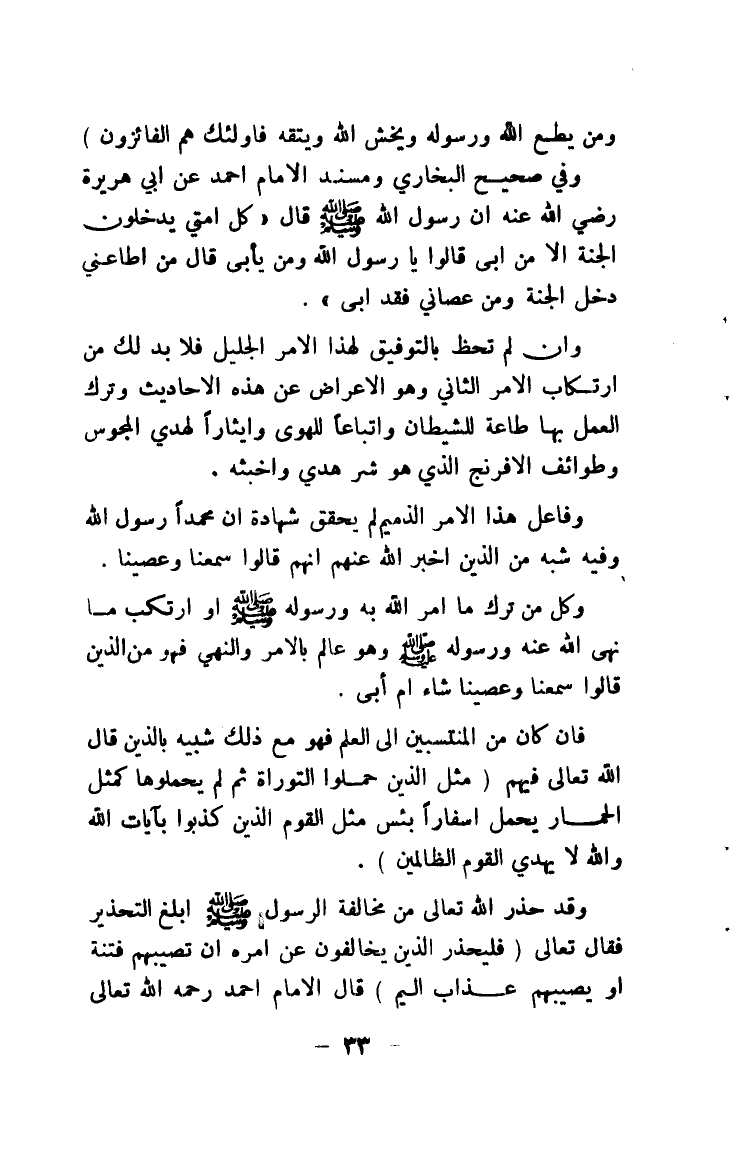 ومن يطع الله ورسوله ويخش الله ويتقه فاولئك هم الفائزون )
وفي صحيح البخاري ومسند الامام احمد عن ابي هريرة
رضي الله عنه ان رسول الله ﷺ قال « كل امتي يدخلون
الجنة الا من ابى قالوا يا رسول الله ومن يأبى قال من اطاعني
دخل الجنة ومن عصاني فقد ابى » .
وان لم تحظ بالتوفيق لهذا الامر الجليل فلا بد لك من
ارتكاب الامر الثاني وهو الاعراض عن هذه الاحاديث وترك
العمل بها طاعة للشيطان واتباعاً للهوى وايثاراً لهدي المجوس
وطوائف الافرنج الذي هو شر هدي واخبثه .
وفاعل هذا الامر الذميم لم يحقق شهادة ان محمداً رسول الله
وفيه شبه من الذين اخبر الله عنهم انهم قالوا سمعنا وعصينا .
وكل من ترك ما امر الله به ورسوله ﷺ او ارتكب مـا
نهى الله عنه ورسوله ﷺ وهو عالم بالامر والنهي فهو من الذين
قالوا سمعنا وعصينا شاء ام أبى .
فان كان من المنتسبين الى العلم فهو مع ذلك شبيه بالذين قال
الله تعالى فيهم ( مثل الذين حمـلوا التوراة ثم لم يحملوها كمثل
الحمـــار يحمل اسفاراً بئس مثل القوم الذين كذبوا بآيات الله
والله لا يهدي القوم الظالمين ) .
وقد حذر الله تعالى من مخالفة الرسول ﷺ ابلغ التحذير
فقال تعالى ( فليحذر الذين يخالفون عن امره ان تصيبهم فتنة
او يصيبهم عـــذاب اليم ) قال الامام احمد رحمه الله تعالى
– ٣٣ –